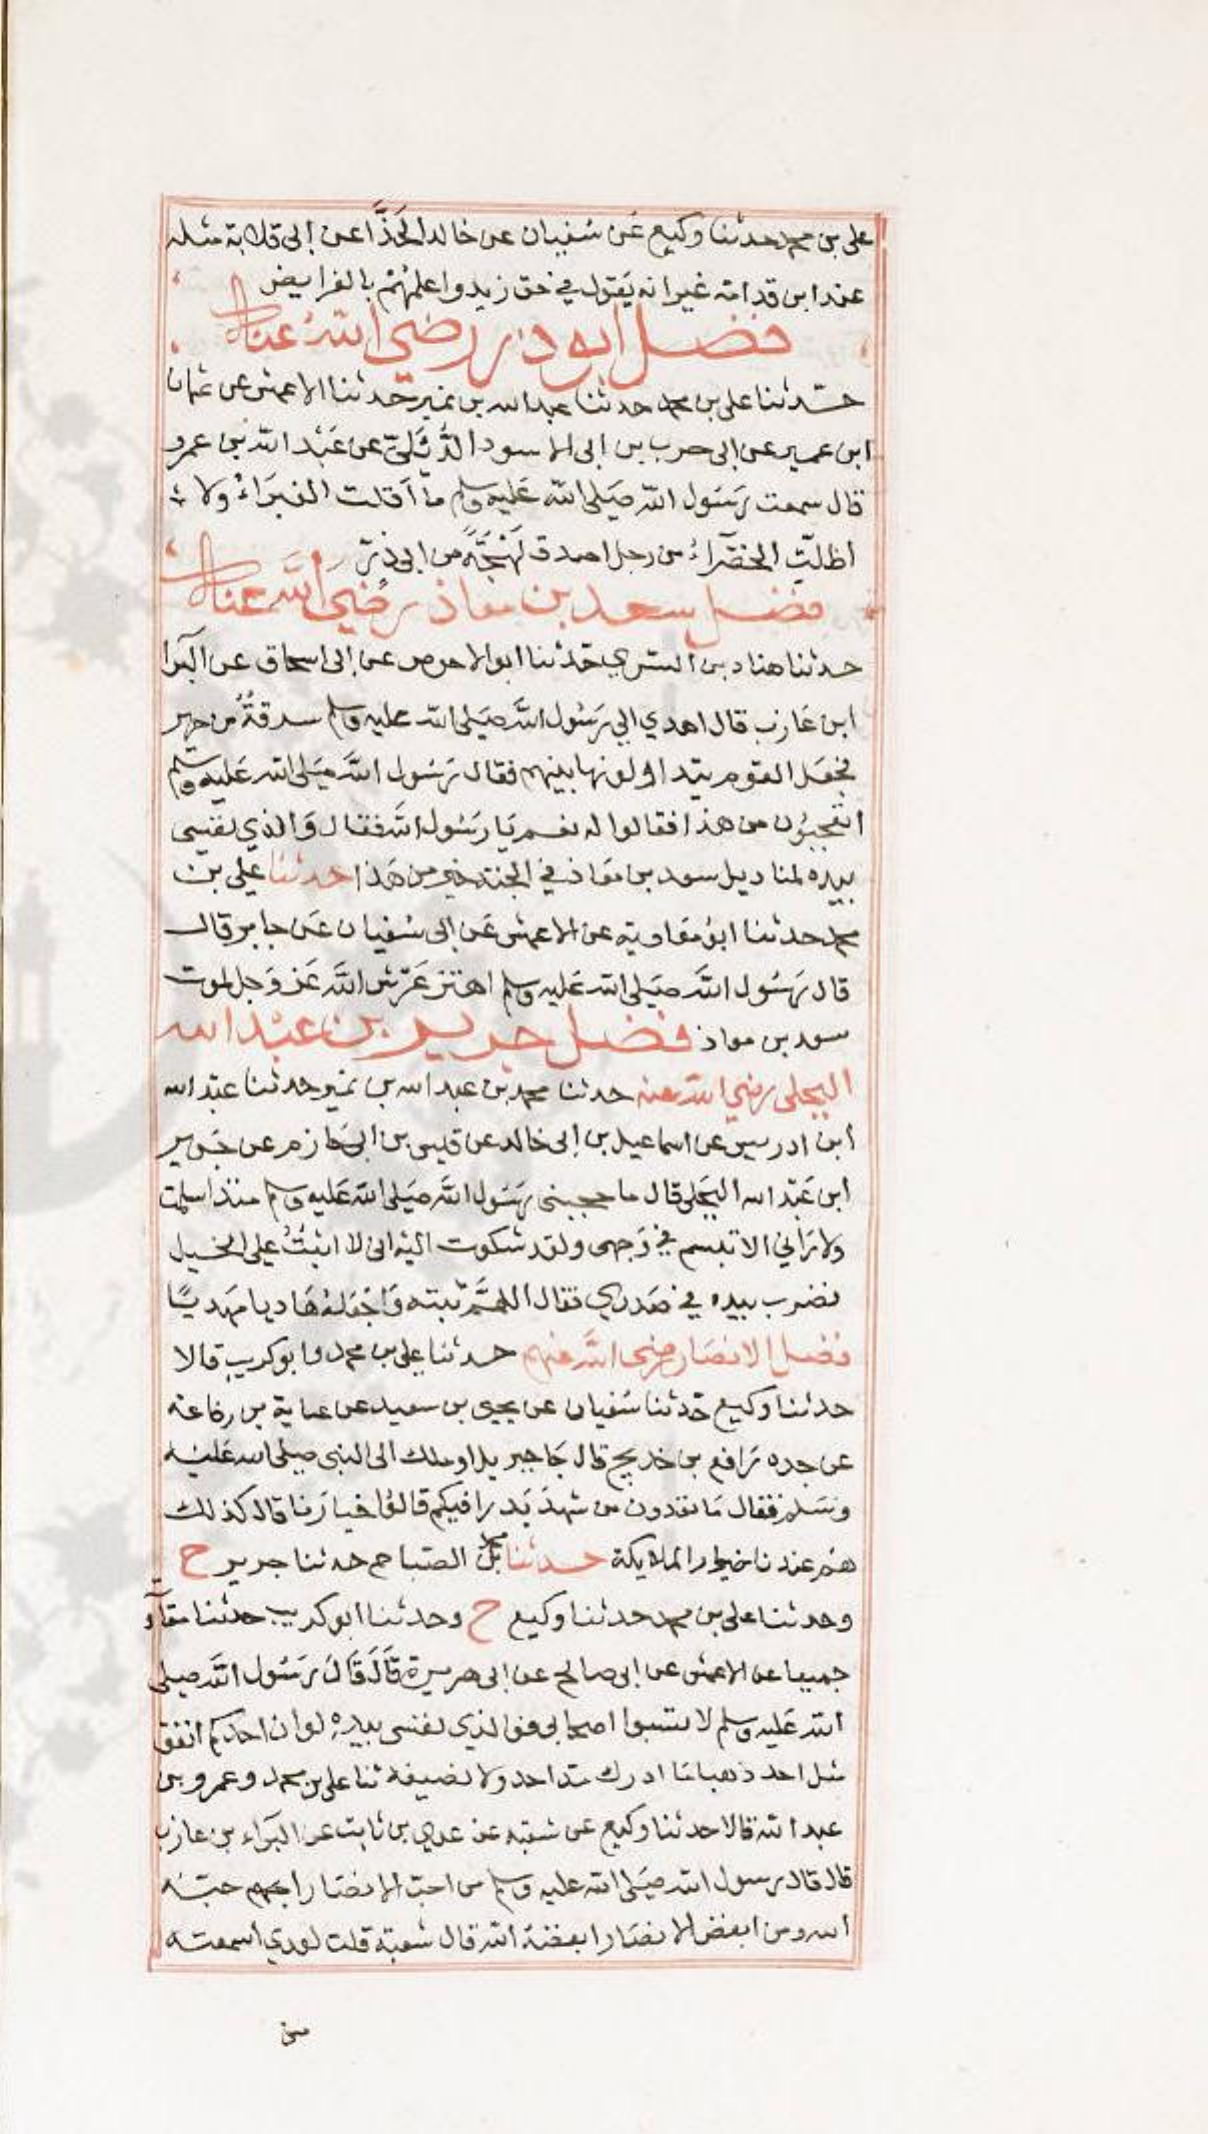 على بن محمد حدثنا وكيع عن سفيان عن خالد الحَذَّا عن ابى قلابة مثله
عند ابن قدامة غير انه يَقول في حق زيد واعلمهُمْ بالفرايض
فضل ابو ذر رضي الله عنه
حدثنا على بن محمد حدثنا عبد الله بن نمير حدثنا الاعمش عن عثمان
ابن عمير عن ابى حرب بن ابى الاسود الدُّئَليّ عن عَبْد الله بن عمرو
قال سمعت رَسَول الله صَلى الله عَليه وسلم مَا أقلت الغبرَاءُ ولا
اظلت الخضرَاءُ من رجل اصدق لَهْجَةً من ابى ذرّ
فضل سعد بن معاذ رضي الله عنه
حدثنا هناد بن السَّري حَدثنا ابو الاحوص عن ابى اسحاق عن البَرا
ابن عَازب قال اهدي الى رَسُول الله صَلى الله عليه وسلم سرقةٌ من حرير
فجعَل القوم يتداولونها بينهم فقال رَسُول الله صَلى الله عَليه وسلم
اتعْجبُون من هذا فقالوا له نعم يَا رَسُول الله فقال وَالذي نفسى
بيده لمناديل سعد بن معَاذ في الجنة خير من هَذا حدثنا على بن
محمد حدثنا ابوُ معَاوية عن الاعمش عَن ابى سُفيان عَن جابر قال
قال رَسُول الله صَلى الله عَليه وسلم اهتز عَرْش الله عَز وَجل لموت
سعد بن معاذ فضل جرير بن عبْد الله
البجلى رضي الله عنه حدثنا محمد بن عبد الله بن نمير حدثنا عبْد الله
ابن ادريس عن اسماعيل بن ابى خالد عن قيس بن ابى حَازم عن جَرير
ابن عَبْد الله البَجلى قال ما حجبنى رَسُول الله صَلى الله عَليه وسلم منذ اسلمت
ولا رَاني الا تبسم في وَجهى ولقد شكوت اليْه انى لا اثبتُ على الخيل
فضرب بيده في صَدري فقال اللهمَّ ثبته وَاجْعَلهُ هَاديا مهديًا
فضل الانصَار رضي الله عنهم حدثنا على بن محمد وابو كريب قالا
حدثنا وكيع حَدثنا سُفيان عن يحيى بن سعيد عن عباية بن رفاعة
عن جده رَافع بن خديج قال جَا جبريل او ملك الى النبى صلى الله عَليْه
وَسَلم فقال مَا تعدون من شهدَ بَدرا فيكم قالوُا خيارَنا قال كذلك
هم عندنا خيار الملايكة حدثنا محمد بن الصَباح حدثنا جرير ح
وحدثنا على بن محمد حدثنا وكيع ح وحدثنا ابو كريب حدثنا معَاو
جميعا عن الاعمش عن ابى صالح عن ابى هريرة قَالَ قَالَ رَسُول الله صلى
الله عَليه وسلم لا تسبوا اصحابى فوالذي نفسى بيده لو ان احدكم انفق
مثل احد ذهبا مَا ادرك مد احد ولا نصيفه ثنا على بن محمد وعمرو بن
عبد الله قالا حدثنا وكيع عن شعبة عن عدي بن ثابت عن البَراء بن عازب
قال قال رسول الله صَلى الله عليه وسلم من احبّ الانصَار احبه
الله ومن ابغض الانصَار ابغضهُ الله قال شعبة قلت لعدي اسمعته
من